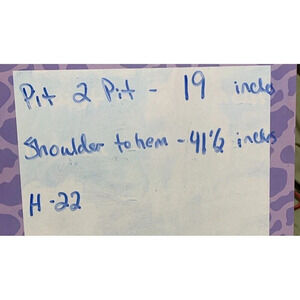 Pit 2 Pit - 19 inches
Shoulder to hem - 41½ inches
H - 22